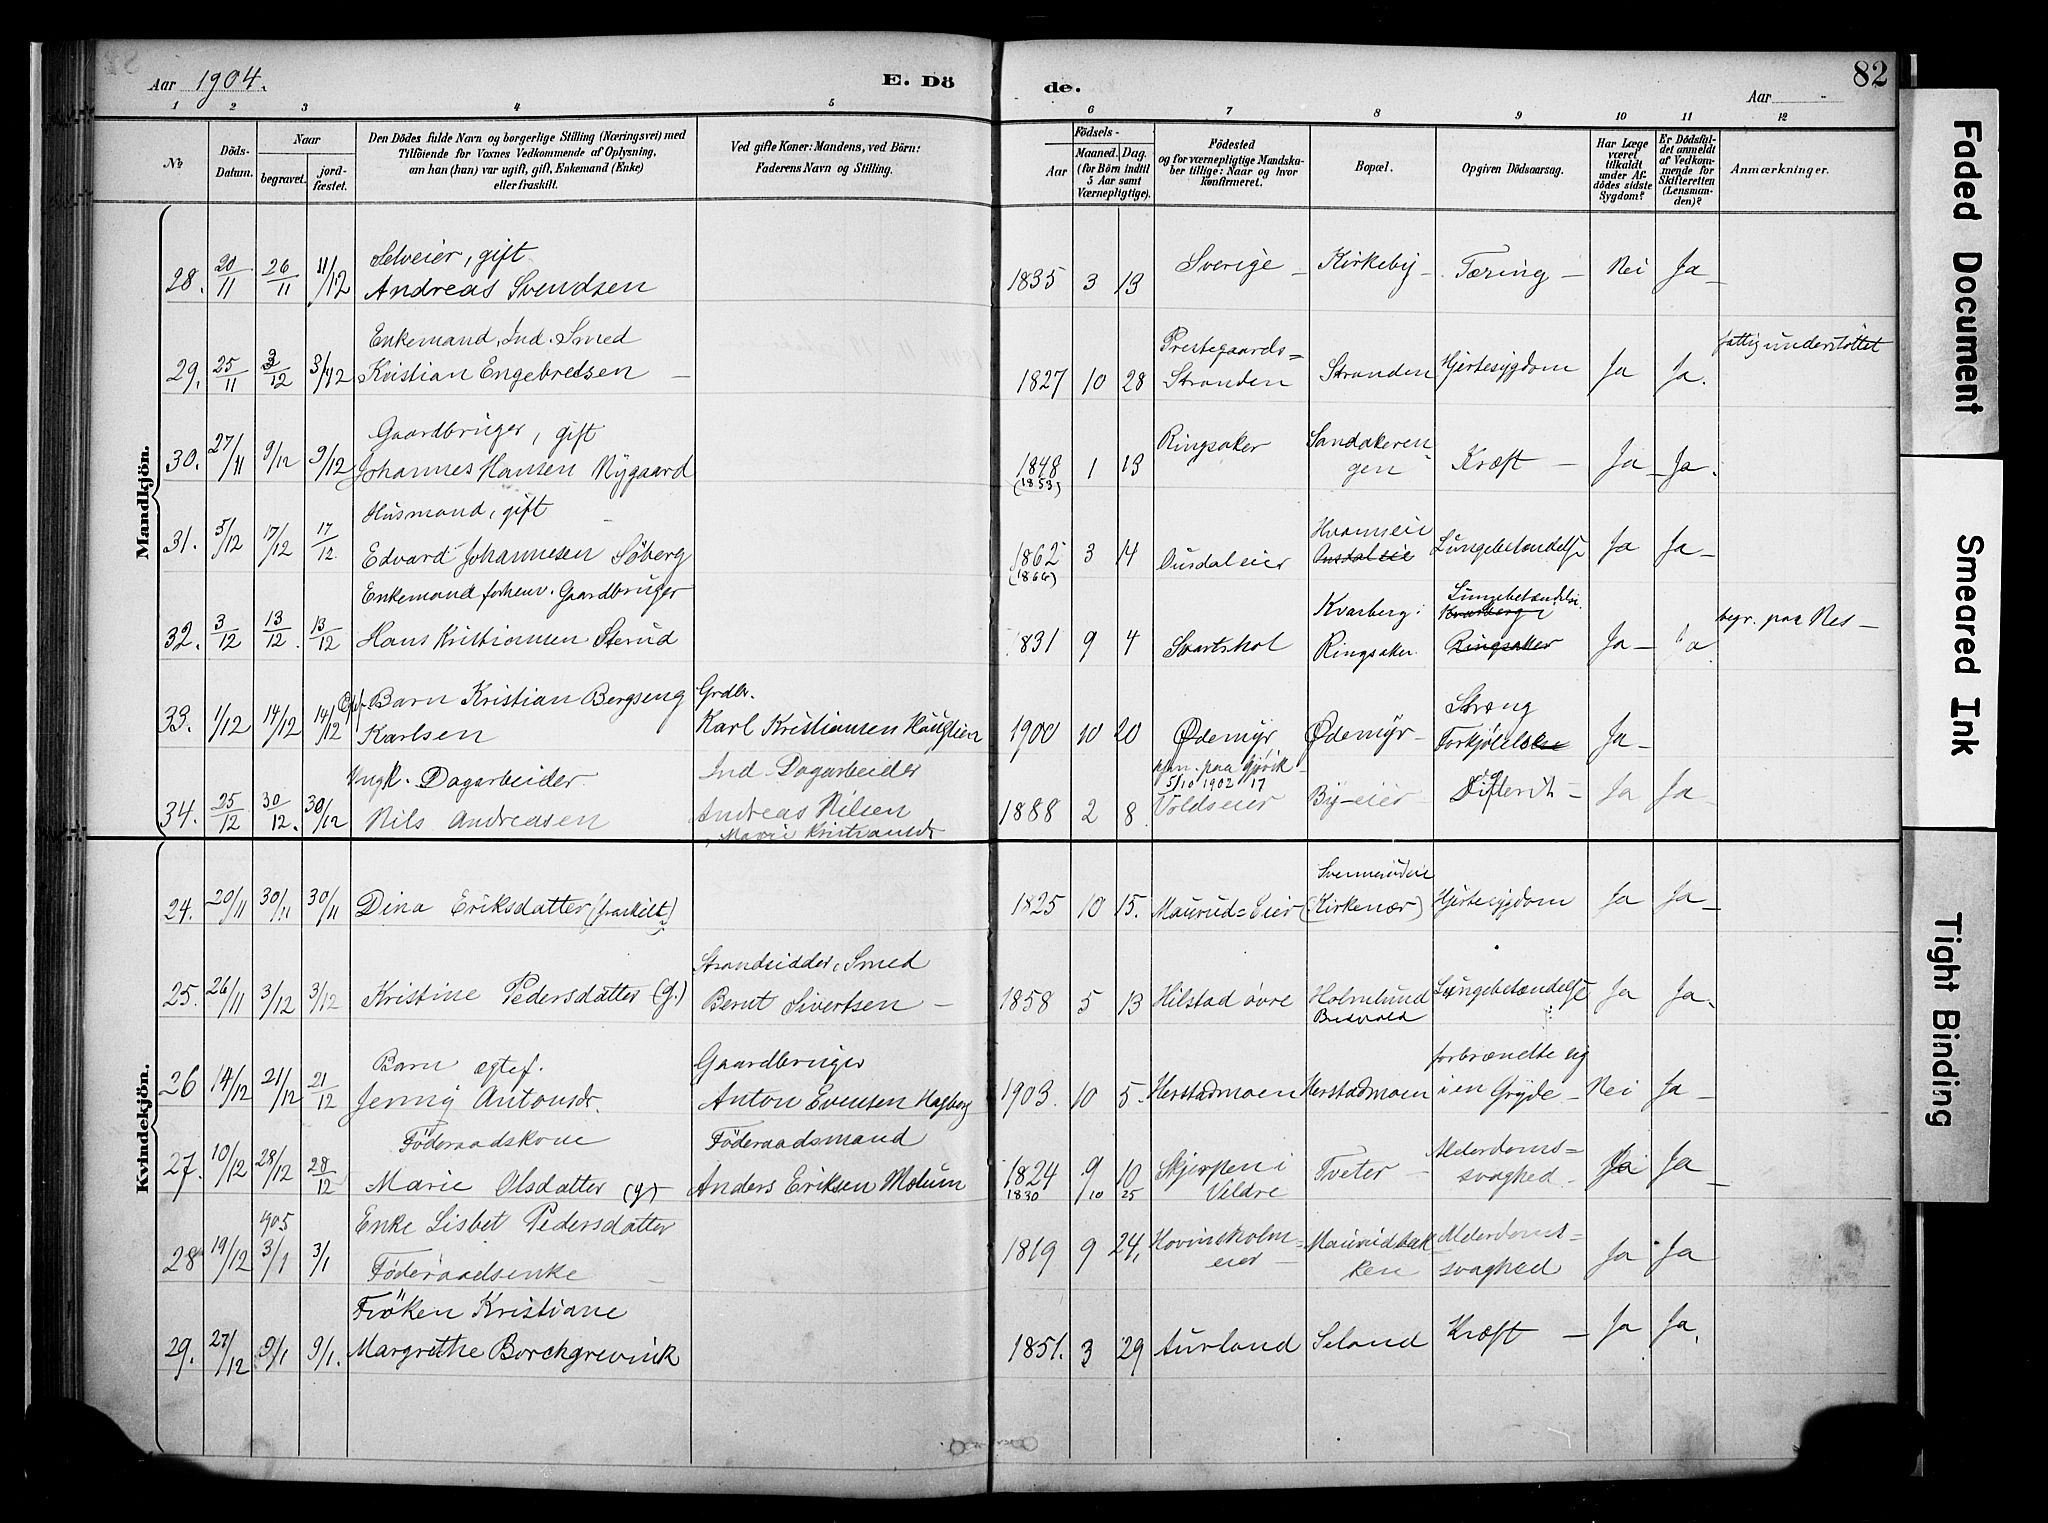 Aar 1904.
E. Dö
de.
Aar
82
1 2 3 4 5 6 7 8 9 10 11 12
No
Döds-Datum.
Naar
begravet.
jord-fæstet.
Den Dödes fulde Navn og borgerlige Stilling (Næringsvei) med
Tilföiende for Voxnes Vedkommende af Oplysning,
om han (hun) var ugift, gift, Enkemand (Enke)
eller fraskilt.
Ved gifte Koner: Mandens, ved Börn:
Faderens Navn og Stilling.
Födsels-
Aar
Maaned. Dag.
(for Börn indtil
5 Aar samt
Værnepligtige).
Födested
og for værnepligtige Mandska-
ber tillige: Naar og hvor
konfirmeret.
Bopæl.
Opgiven Dödsaarsag.
Har Læge
været
tilkaldt
under Af-
dödes sidste
Sygdom?
Er Dödsfal-
det anmeldt
af Vedkom-
mende for
Skifteretten
(Lensman-
den)?
Anmærkninger.
Mandkjön.
28. 20/11 26/11 11/12 Selveier, gift
Andreas Svendsen
1835 3 13 Sverige – Kirkeby – Tæring – Nei Ja –
29. 25/11 3/12 3/12 Enkemand, Ind. Smed
Kristian Engebretsen –
1827 10 28 Prestegaards=
Stranden Stranden Hjertesygdom Ja Ja. fattigunderstöttet
30. 27/11 9/12 9/12 Gaardbruger, gift
Johannes Hansen Nygaard
1848 1 13 Ringsaker Sandakeren
gen Kræft – Ja – Ja.
(1853)
31. 5/12 17/12 17/12 Husmand, gift
Edvard Johannesen Söberg
1862 3 14 Ousdaleier Hvamseie
Ousdaleie Lungebetændelse Ja Ja –
(1866)
32. 3/12 13/12 13/12 Enkemand forhenv. Gaardbruger
Hans Kristiansen Sterud
1831 9 4 Svartshol Kvarberg i
Ringsaker Lungebetændelse
Kvarberg i
Ringsaker Ja – Ja begr. paa Nes –
33. 1/12 14/12 14/12 Barn Kristian Bergseng
Karlsen
Grdbr.
Karl Kristiansen Haugtien
1900 10 20 Ødemyr Ødemyr – Stræng
Forkjölelse Ja –
34. 25/12 30/12 30/12 Ungk. Dagarbeider
Nils Andreasen
Ind. Dagarbeider
Andreas Nilsen
Marie Kristiansdr
1888 2 8 kon. paa Gjövik
5/10 1902 17
Voldseier By-eier Difterit – Ja Ja –
Kvindekjön.
24. 20/11 30/11 30/11 Dina Eriksdatter (fraskilt)
1825 10 15. Maurud=Eier (Kirkenær) Hjertesygdom Ja Ja –
25. 26/11 3/12 3/12 Kristine Pedersdatter (g.)
Strandsidder, Smed
Bernt Sivertsen –
1858 5 13 Hilstad övre Holmlund
Bredvold Lungebetændelse Ja Ja.
26 14/12 21/12 21/12 Barn ægtef.
Jenny Antonsdr.
Gaardbruger
Anton Evensen Hagberg
1903. 10 5. Herstadmoen Herstadmoen forbrændte sig
i en Gryde – Nei Ja –
27. 10/12 28/12 28/12 Föderaadskone
Marie Olsdatter (g)
Föderaadsmand
Anders Eriksen Mælum
1824 9 10 Skjerpen i
Veldre Tveter – Alderdoms=
svaghed – Ja Ja –
1830 10 25
28 19/12 905 3/1 3/1 Enke Lisbet Pedersdatter
Föderaadsenke –
1819 9 24, Hovinsholm=
eier – Maurudbak
ken Alderdoms=
svaghed Ja Ja
29. 27/12 9/1 9/1. Fröken Kristiane
Margrethe Borchgrevink
1851. 3 29 Aurland Seland Kræft – Ja Ja.
Faded Document
Smeared Ink
Tight Binding